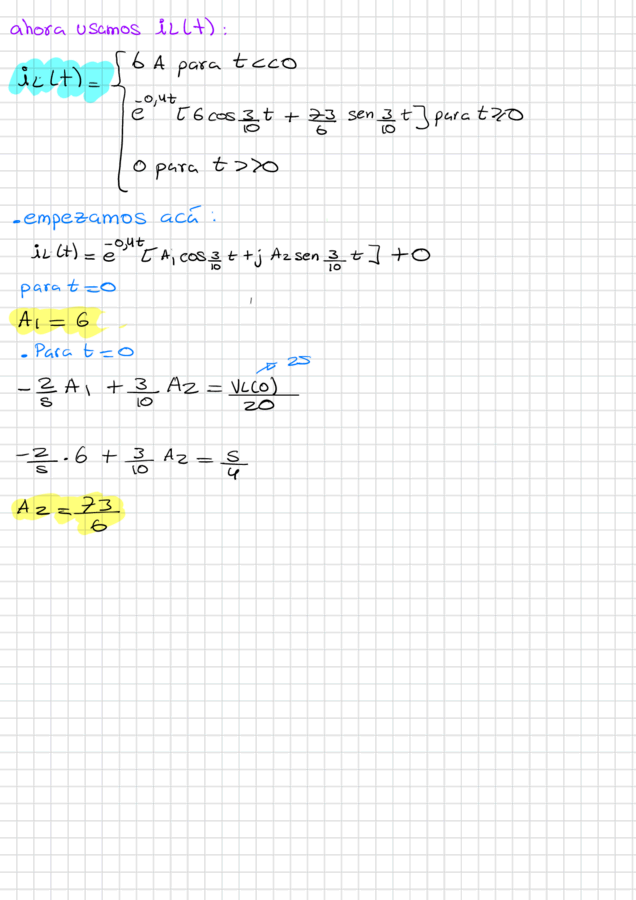 ahora usamos iL(t):
6 A para t<<0
iL(t)=
e^-0,4t [6cos 3/10 t + 73/6 sen 3/10 t] para t≥0
0 para t>>0
.empezamos acá:
iL(t) = e^-0,4t [A₁cos 3/10 t + j A₂ sen 3/10 t] + 0
para t=0
A₁ = 6
. Para t=0
25
-2/5 A₁ + 3/10 A₂ = VL(0)/20
-2/5 . 6 + 3/10 A₂ = 5/4
A₂ = 73/6